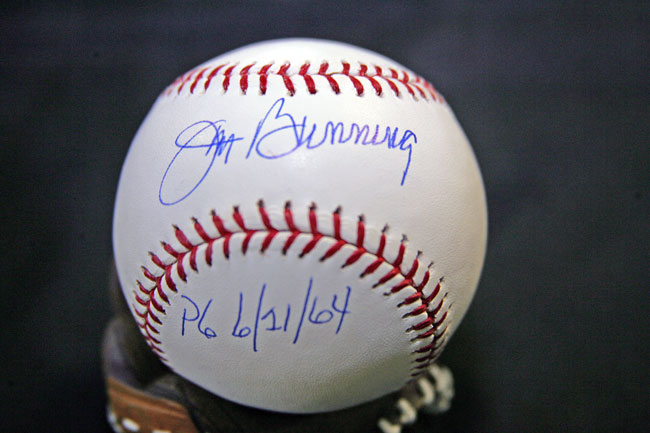 Jim Bunning
PG 6/21/64